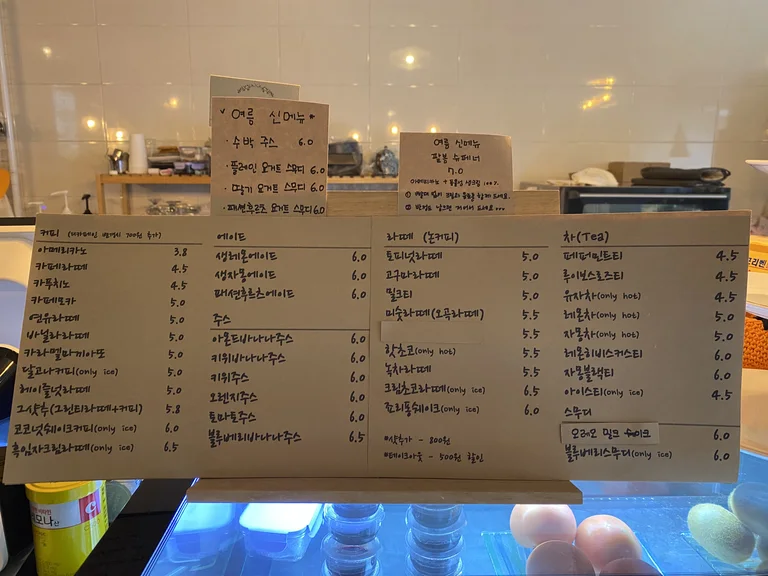 여름 신메뉴
· 수박 주스 6.0
· 플레인 요거트 스무디 6.0
· 딸기 요거트 스무디 6.0
· 패션후르츠 요거트 스무디 6.0
여름 신메뉴
팥봉 슈페너
7.0
아메리카노 + 동물성 생크림 100%
커피 (디카페인 변경시 700원 추가)
아메리카노 3.8
카페라떼 4.5
카푸치노 4.5
카페모카 5.0
연유라떼 5.0
바닐라라떼 5.0
카라멜마끼아또 5.0
달고나커피(only ice) 5.0
헤이즐넛라떼 5.0
그샷추(그린티라떼+커피) 5.8
코코넛쉐이크커피(only ice) 6.0
흑임자크림라떼(only ice) 6.5
에이드
생레몬에이드 6.0
생자몽에이드 6.0
패션후르츠에이드 6.0
주스
아몬드바나나주스 6.0
키위바나나주스 6.0
키위주스 6.0
오렌지주스 6.0
토마토주스 6.0
블루베리바나나주스 6.5
라떼 (논커피)
토피넛라떼 5.0
고구마라떼 5.0
밀크티 5.0
미숫라떼(오곡라떼) 5.5
5.5
핫초코(only hot) 5.5
녹차라떼 5.0
크림초코라떼(only ice) 6.5
죠리퐁쉐이크(only ice) 6.0
*샷추가 - 800원
*테이크아웃 - 500원 할인
차(Tea)
페퍼민트티 4.5
루이보스로즈티 4.5
유자차(only hot) 4.5
레몬차(only hot) 5.5
자몽차(only hot) 5.5
레몬히비스커스티 6.0
자몽블랙티 6.0
아이스티(only ice) 4.5
스무디
오레오 밀크 쉐이크 6.0
블루베리스무디(only ice) 6.0